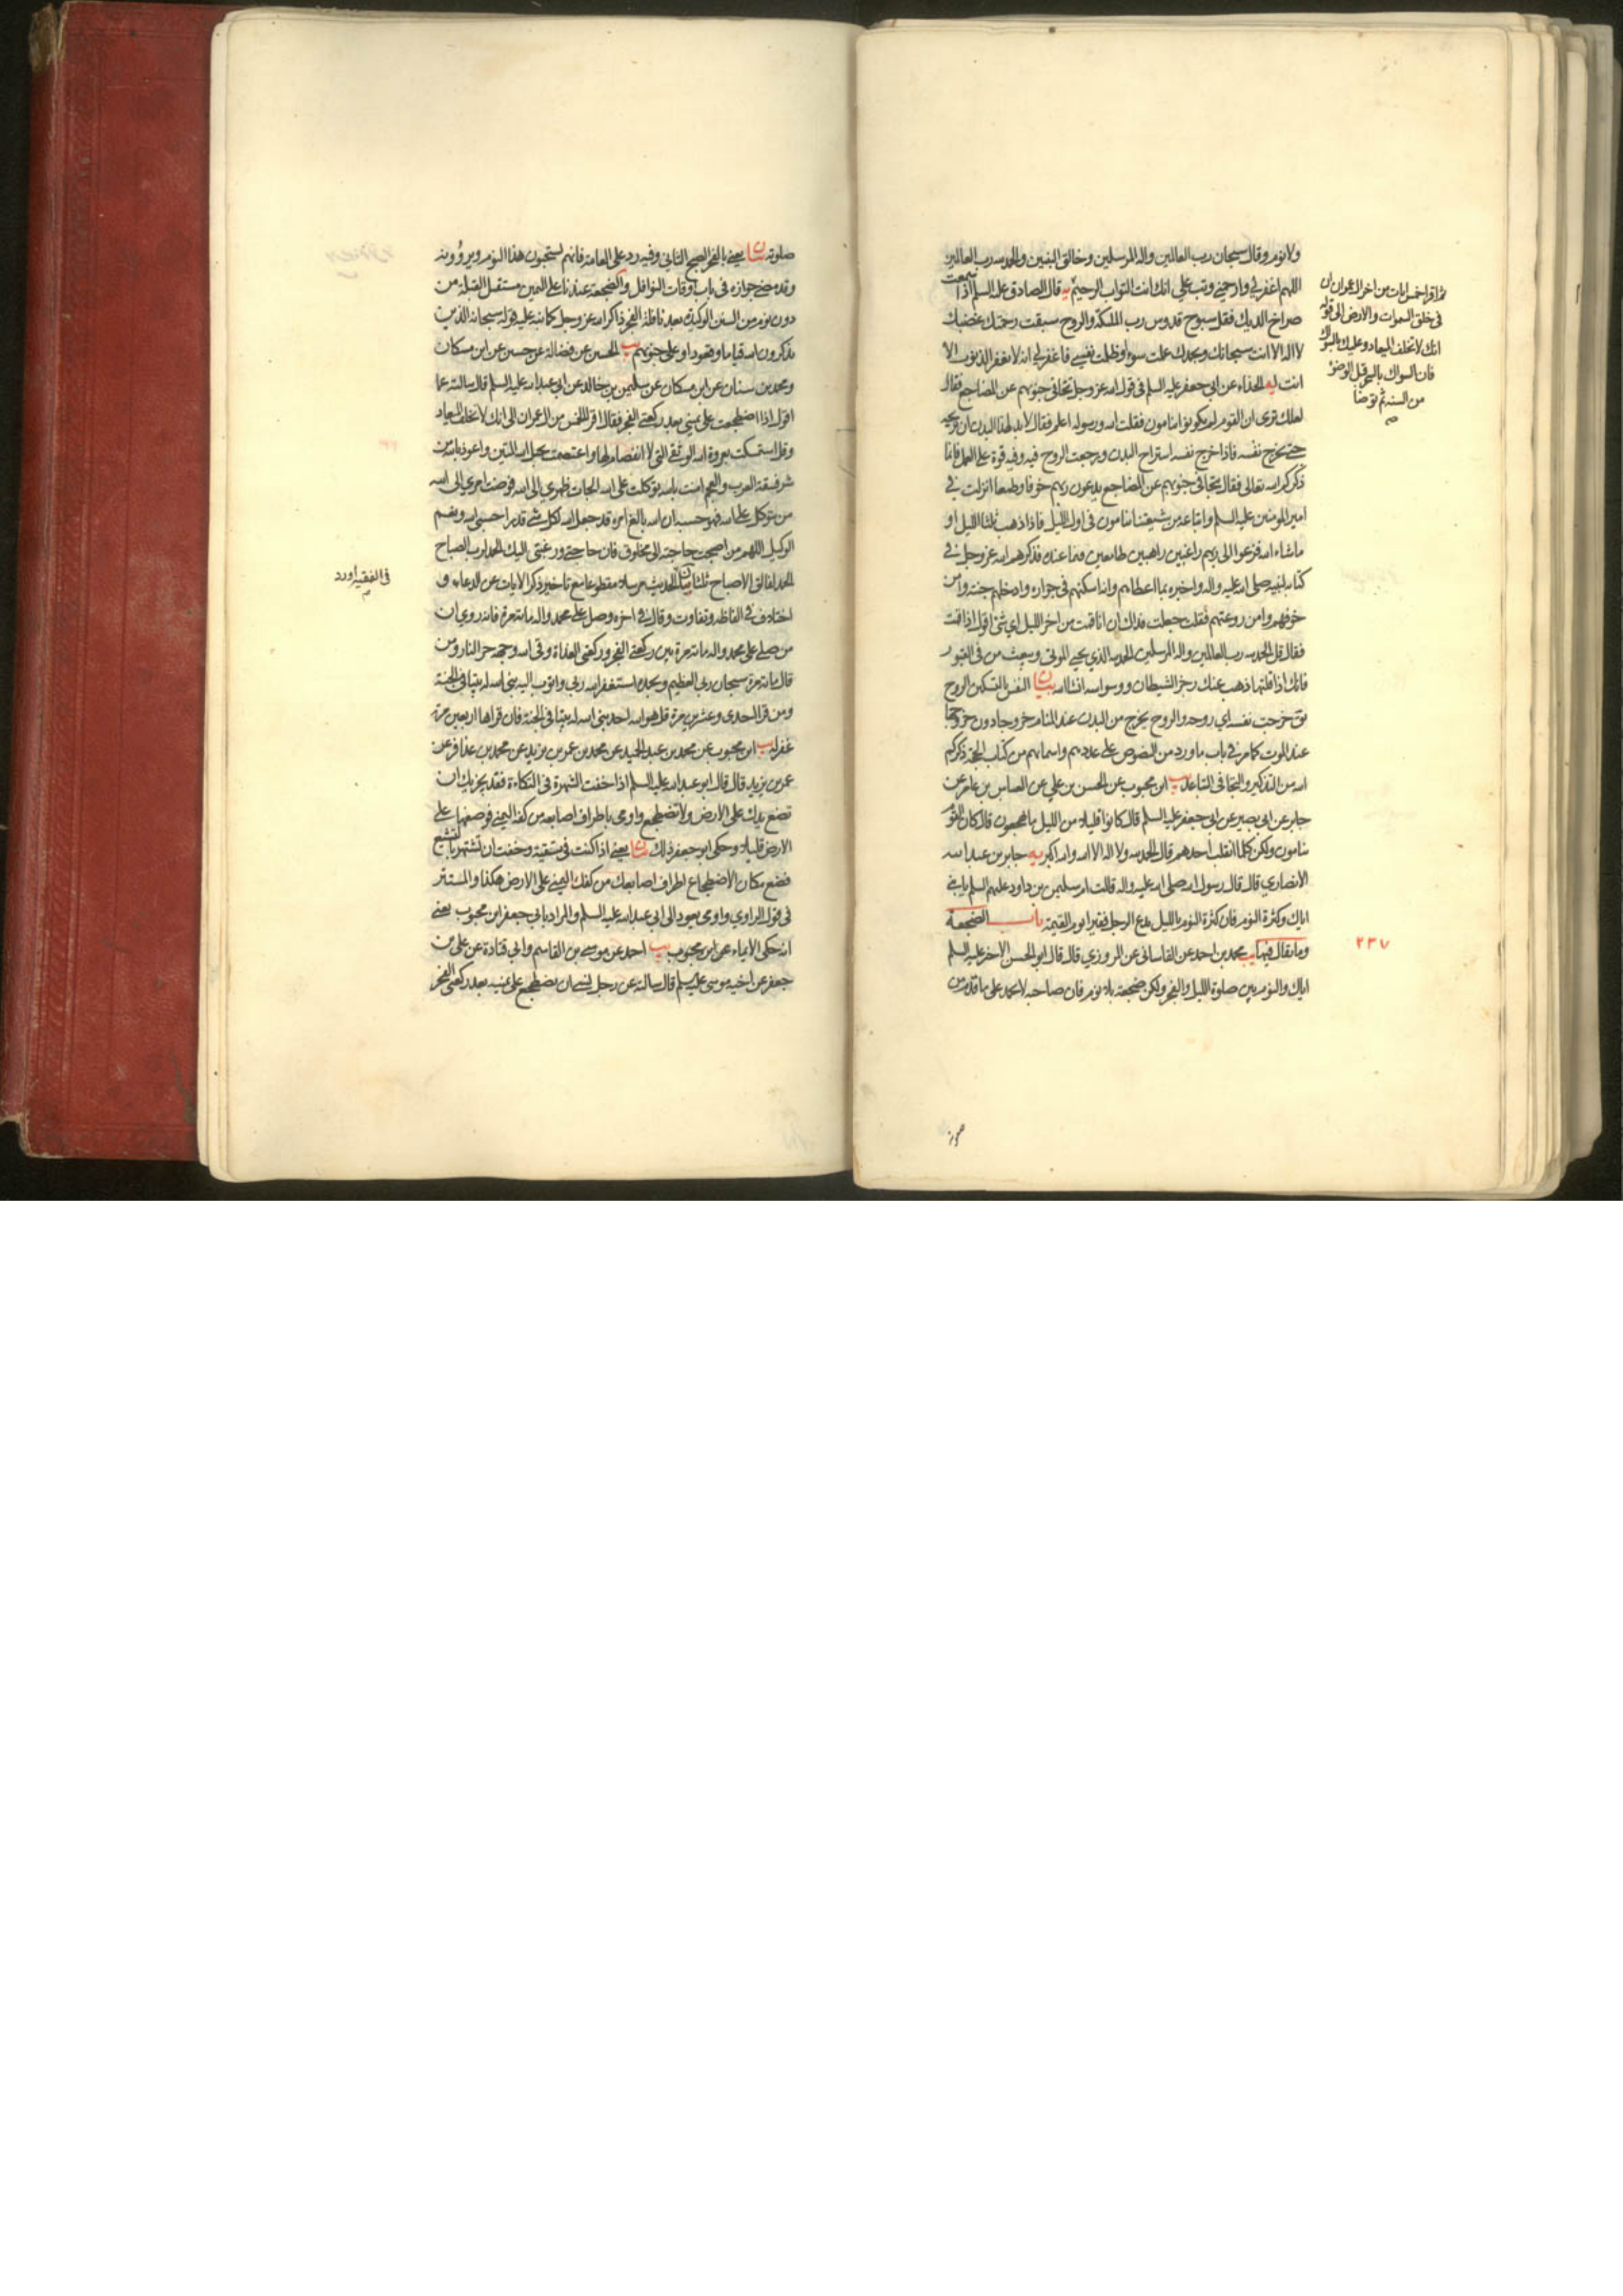 ولا نوم وقال سبحان رب العالمين واله المرسلين وخالق النبيين والحمد لله رب العالمين
اللهم اغفر لي وارحمني وتب علي انك انت التواب الرحيم يه قال الصادق عليه السلم اذا سمعت
صراخ الديك فقل سبوح قدوس رب الملئكة والروح سبقت رحمتك غضبك
لا اله الا انت سبحانك وبحمدك عملت سوءا وظلمت نفسي فاغفر لي انه لا يغفر الذنوب الا
انت يه الحذاء عن ابي جعفر عليه السلم في قول الله عز وجل تتجافى جنوبهم عن المضاجع فقال
لعلك ترى ان القوم لم يكونوا ينامون فقلت الله ورسوله اعلم فقال لا بد لهذا البدن ان تريحه
حتى يخرج نفسه فاذا خرج نفسه استراح البدن ورجعت الروح فيه وفيه قوة على العمل فانما
ذكركم الله تعالى فقال تتجافى جنوبهم عن المضاجع يدعون ربهم خوفا وطمعا انزلت في
امير المؤمنين عليه السلم واتباعه من شيعتنا ينامون في اول الليل فاذا ذهب ثلثا الليل او
ما شاء الله فزعوا الى ربهم راغبين راهبين طامعين فيما عنده فذكرهم الله عز وجل في
كتابه لنبيه صلى الله عليه واله واخبره بما اعطاهم وانه اسكنهم في جواره وادخلهم جنته وامن
خوفهم وامن روعتهم فقلت جعلت فداك ان انا قمت من اخر الليل اي شئ اقول اذا قمت
فقال قل الحمد لله رب العالمين واله المرسلين الحمد لله الذي يحيي الموتى ويبعث من في القبور
فانك اذا قلتها ذهب عنك رجز الشيطان ووسواسه انشاالله بيان النفس بالتسكين الروح
يق خرجت نفسه اي روحه والروح يخرج من البدن عند المنام خروجا دون خروجها
عند الموت كما مر في باب ما ورد من النصوص على عددهم واسمائهم من كتاب الحجة ذكركم
الله من التذكير والتجافي التباعد يب ابن محبوب عن الحسن بن علي عن العباس بن عامر عن
جابر عن ابي بصير عن ابي جعفر عليه السلم قال كانوا قليلا من الليل ما يهجعون قال كان القوم
ينامون ولكن كلما انقلب احدهم قال الحمد لله ولا اله الا الله والله اكبر يه جابر بن عبدالله
الانصاري قال قال رسول الله صلى الله عليه واله قالت ام سليمن بن داود عليهم السلم يا بني
اياك وكثرة النوم فان كثرة النوم بالليل يدع الرجل فقيرا يوم القيمة باب الضجعة
وما يقال فيها يب محمد بن احمد عن القاساني عن المروزي قال قال ابو الحسن الاخير عليه السلم
اياك والنوم بين صلوة الليل والفجر ولكن ضجعة بلا نوم فان صاحبه لا يحمد على ما قدم من
ثم اقرا خمس ايات من اخر ال عمران ان
في خلق السموات والارض الى قوله
انك لا تخلف الميعاد وعليك بالسواك
فان السواك بالسحر قبل الوضوء
من السنة ثم توضا
٢٣٧
صلوته بيان يعني بالفجر الصبح الثاني وفيه رد على العامة فانهم يستحبون هذا النوم ويروونه
وقد مضى جوازه في باب اوقات النوافل والضجعة عندنا على اليمين مستقبل القبلة من
دون نوم من السنن الوكيدة بعد نافلة الفجر ذاكرا لله عز وجل كما نبه عليه قوله سبحانه الذين
يذكرون الله قياما وقعودا وعلى جنوبهم يب الحسين عن فضالة عن حسين عن ابن مسكان
ومحمد بن سنان عن ابن مسكان عن سليمن بن خالد عن ابي عبدالله عليه السلم قال سالته عما
اقول اذا اضطجعت على يميني بعد ركعتي الفجر فقال اقرا الخمس من ال عمران الى انك لا تخلف الميعاد
وقل استمسكت بعروة الله الوثقى التي لا انفصام لها واعتصمت بحبل الله المتين واعوذ بالله من
شر فسقة العرب والعجم امنت بالله توكلت على الله الجات ظهري الى الله فوضت امري الى الله
من يتوكل على الله فهو حسبه ان الله بالغ امره قد جعل الله لكل شئ قدرا حسبي الله ونعم
الوكيل اللهم من اصبحت حاجته الى مخلوق فان حاجتي ورغبتي اليك الحمد لرب الصباح
الحمد لفالق الاصباح ثلثا بيان الحديث مرسلا مقطوعا مع تاخير ذكر الايات عن الدعاء و
اختلاف في الفاظه وتفاوت وقال في اخره وصل على محمد واله مائة مرة فانه روي ان
من صلى على محمد واله مائة مرة بين ركعتي الفجر وركعتي الغداة وقى الله وجهه حر النار ومن
قال مائة مرة سبحان ربي العظيم وبحمده استغفر الله ربي واتوب اليه بنى الله له بيتا في الجنة
ومن قرا احدى وعشرين مرة قل هو الله احد بنى الله له بيتا في الجنة فان قراها اربعين مرة
غفر له يب ابن محبوب عن محمد بن عبدالحميد عن محمد بن عمر بن يزيد عن محمد بن عذافر عن
عمر بن يزيد قال قال ابو عبدالله عليه السلم اذا خفت الشهرة في التكاءة فقد يجزيك ان
تضع يدك على الارض ولا تضطجع واومى باطراف اصابعه من كفه اليمنى فوضعها على
الارض قليلا وحكى ابو جعفر ذلك بيان يعني اذا كنت في تقية وخفت ان تشتهر بالتشيع
فضع مكان الاضطجاع اطراف اصابعك من كفك اليمنى على الارض هكذا والمستتر
في قول الراوي واومى يعود الى ابي عبدالله عليه السلم والمراد بابي جعفر ابن محبوب يعني
انه حكى الايماء عن ابن محبوب يب احمد عن موسى بن القاسم وابي قتادة عن علي بن
جعفر عن اخيه موسى عليه السلم قال سالته عن رجل نسي ان يضطجع على يمينه بعد ركعتي الفجر
في الفقيه اورد